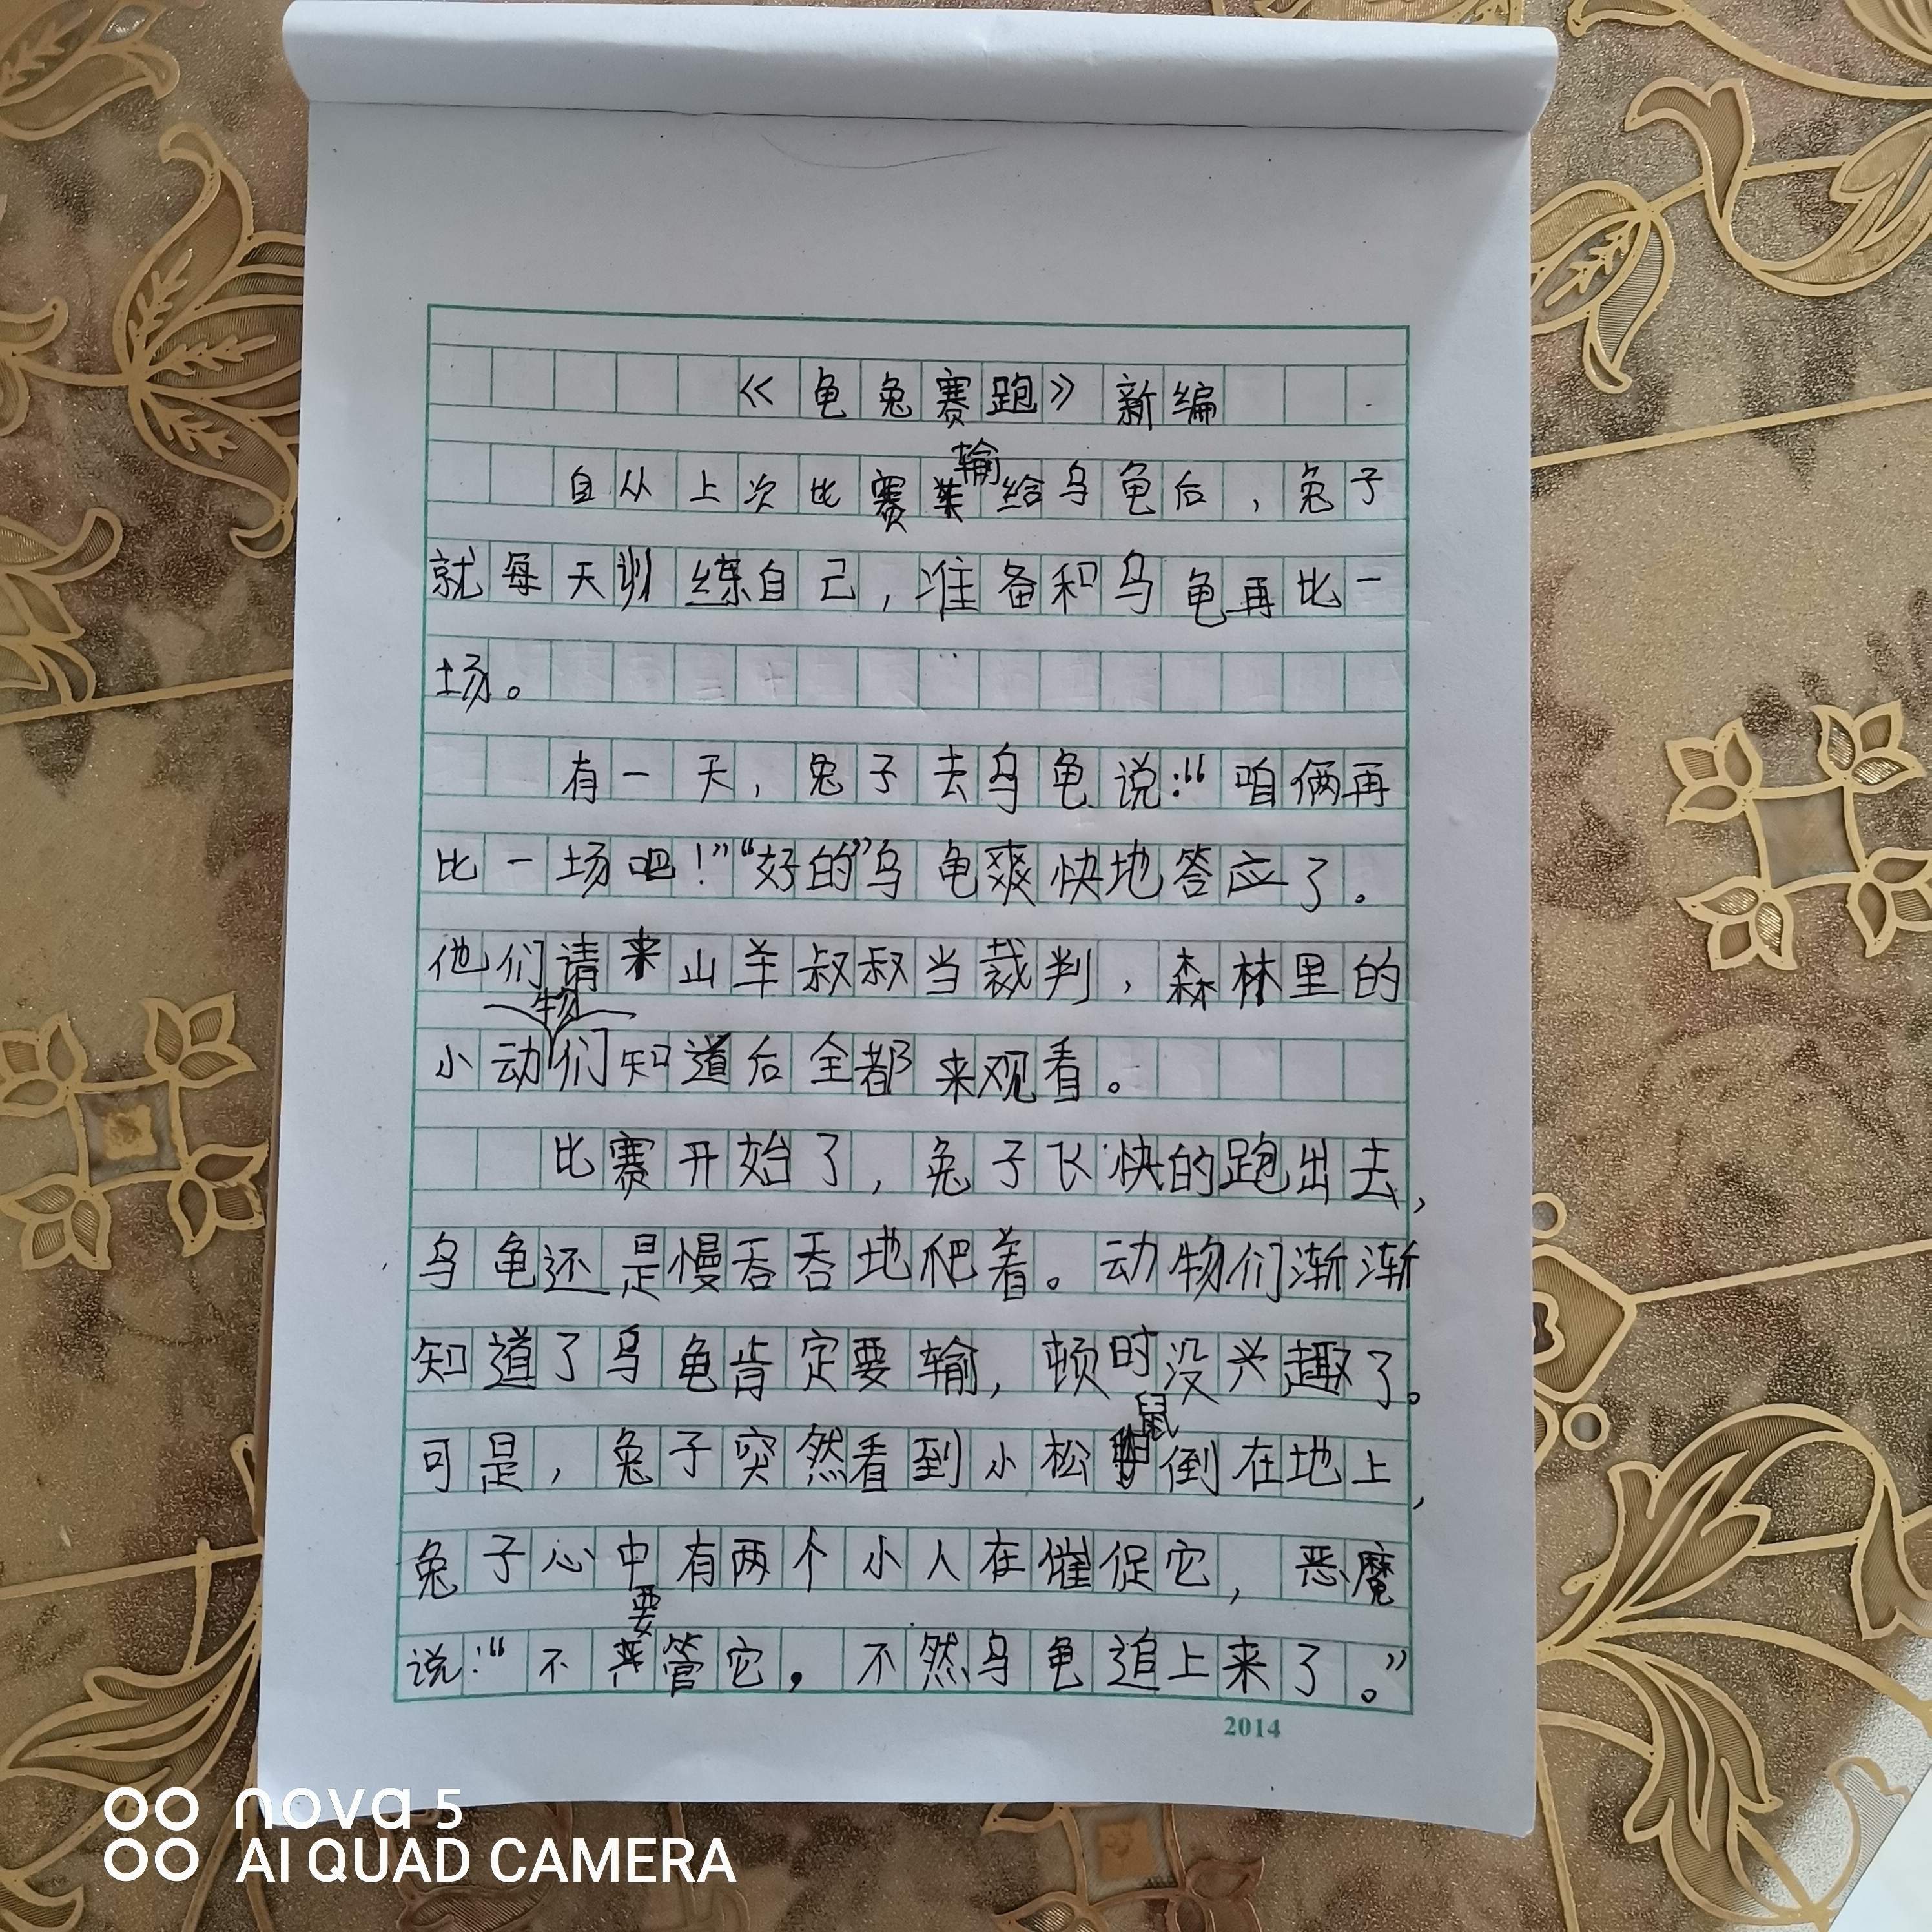 《龟兔赛跑》新编
自从上次比赛输给乌龟后，兔子
就每天训练自己，准备和乌龟再比一
场。
有一天，兔子去乌龟说：“咱俩再
比一场吧！”“好的”乌龟爽快地答应了。
他们请来山羊叔叔当裁判，森林里的
小动物们知道后全都来观看。
比赛开始了，兔子飞快的跑出去，
乌龟还是慢吞吞地爬着。动物们渐渐
知道了乌龟肯定要输，顿时没兴趣了。
可是，兔子突然看到小松鼠倒在地上，
兔子心中有两个小人在催促它，恶魔
说：“不要管它，不然乌龟追上来了。”
2014
nova 5
AI QUAD CAMERA